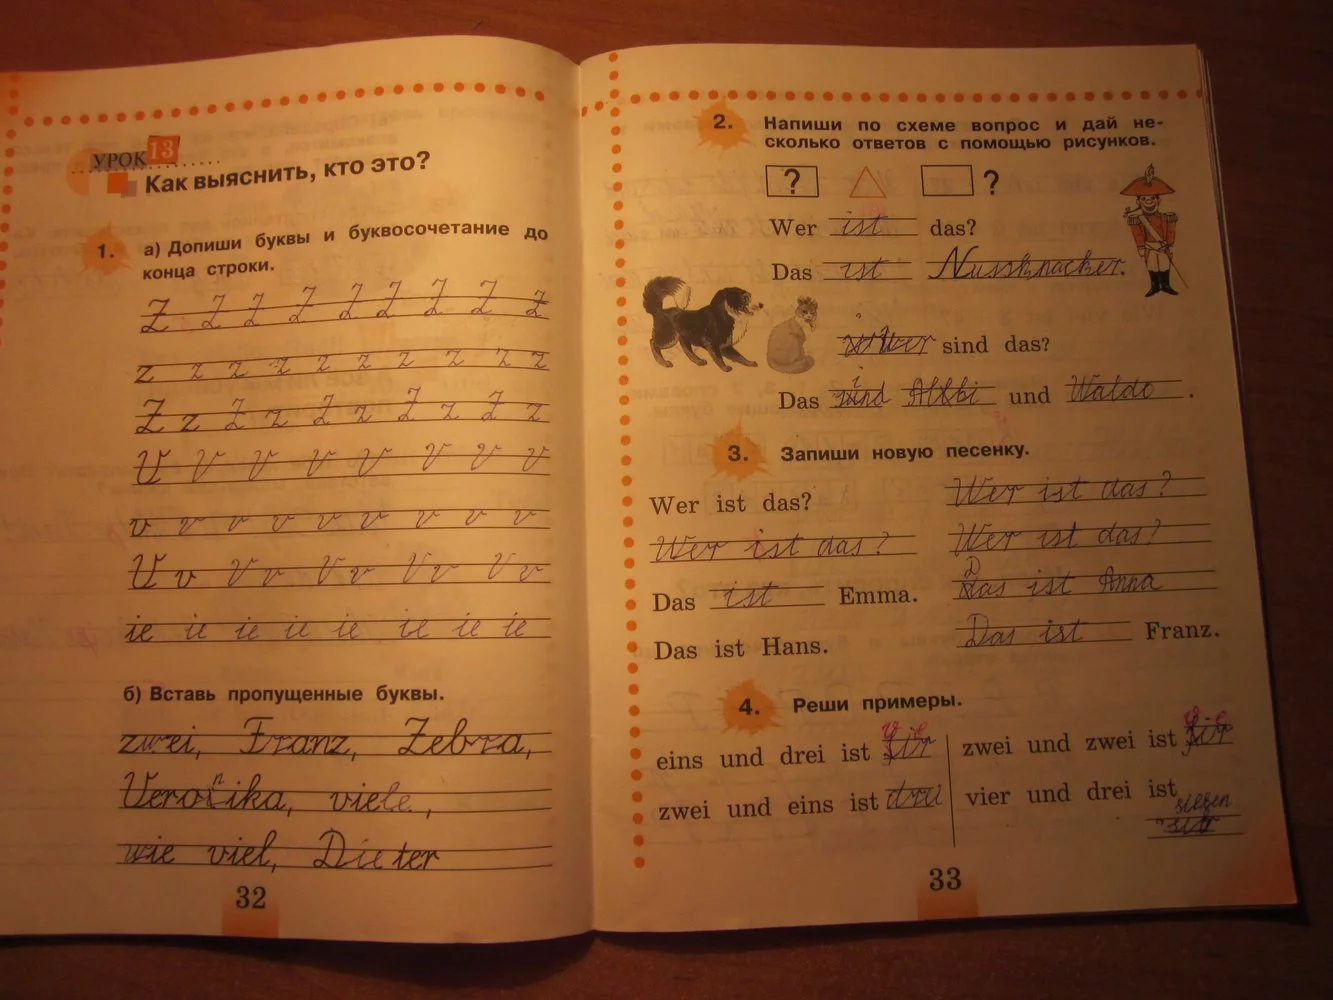 УРОК 13
Как выяснить, кто это?
1. а) Допиши буквы и буквосочетание до
конца строки.
Z Z Z Z Z Z Z Z Z
z z z z z z z z z
Z z Z z Z z Z z Z z
V V V V V V V V
v v v v v v v v
V v V v V v V v V v
ie ie ie ie ie ie ie ie
б) Вставь пропущенные буквы.
zwei, Franz, Zebra,
Veronika, viele,
wie viel, Dieter
32
2. Напиши по схеме вопрос и дай не-
сколько ответов с помощью рисунков.
? ?
Wer ist das?
Das ist Nussknacker.
Wer sind das?
Das sind und Waldo.
3. Запиши новую песенку.
Wer ist das? Wer ist das?
Wer ist das? Wer ist das?
Das ist Emma. Das ist Anna
Das ist Hans. Das ist Franz.
4. Реши примеры.
eins und drei ist zwei und zwei ist
zwei und eins ist drei vier und drei ist
sieben
33